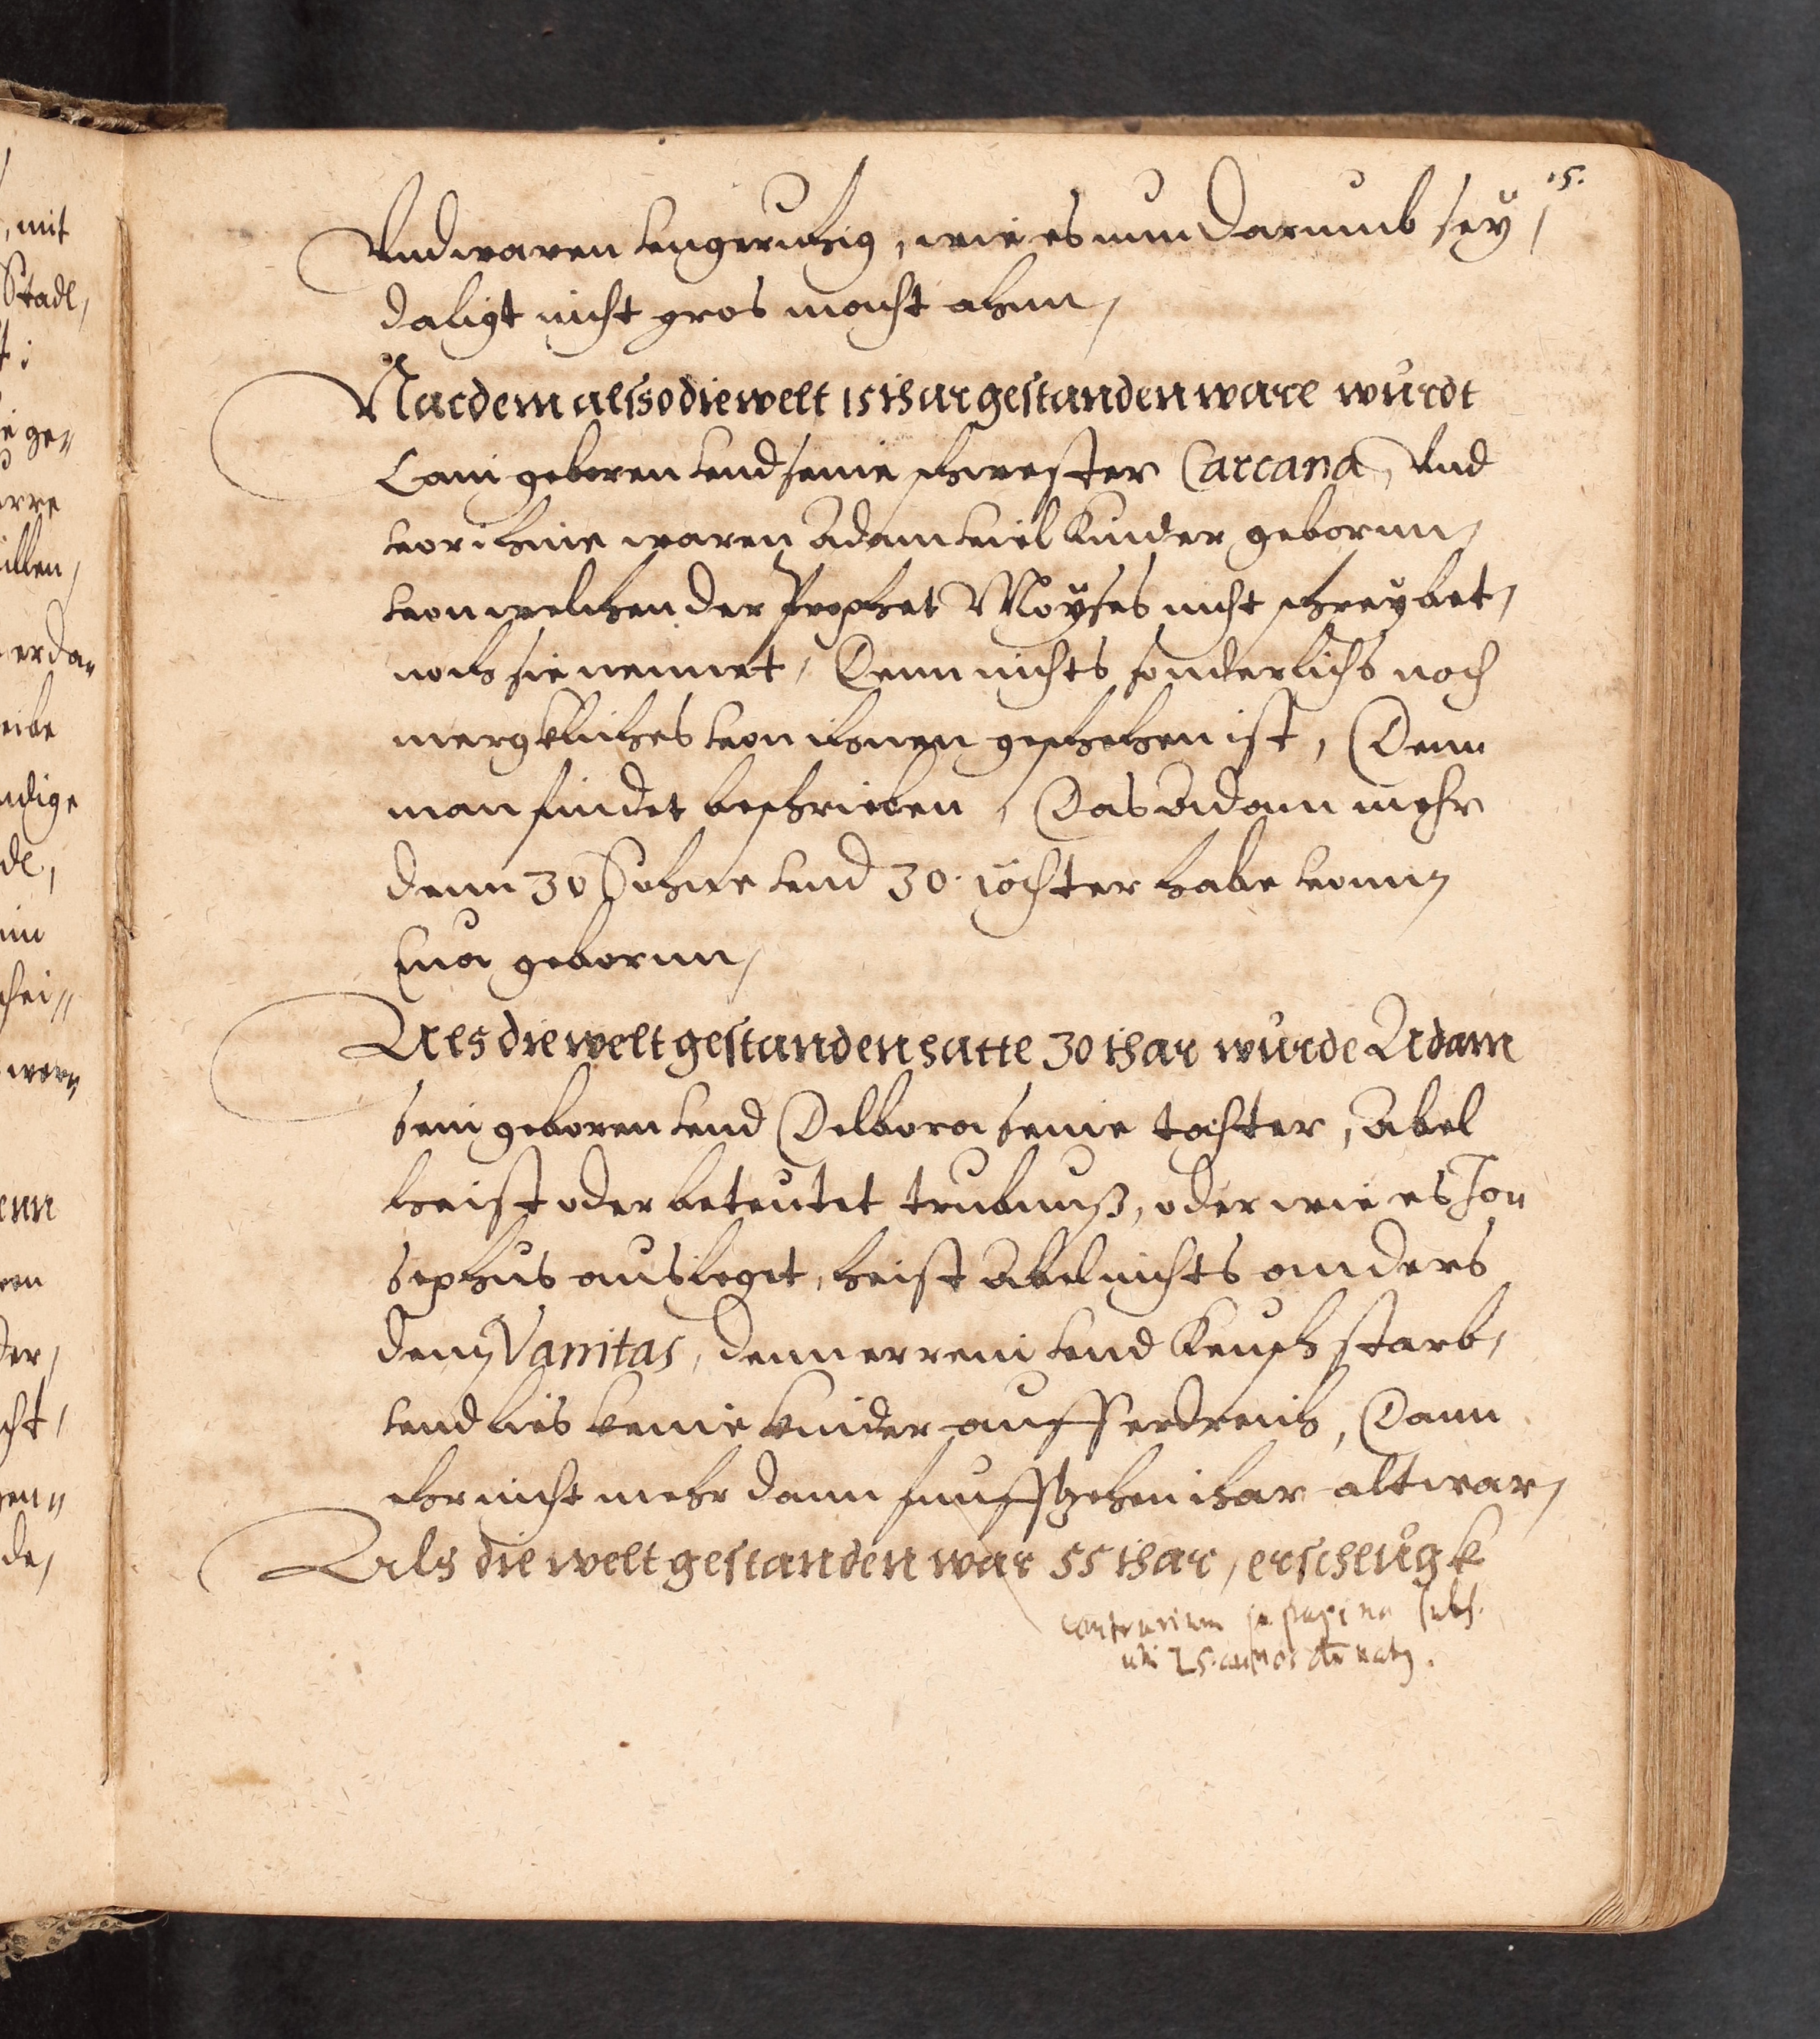 15.
Vnd waren vngeruhig, wie es nun darumb seÿ/
daligt nicht gros macht ahnn/
Nacdem alsso die welt 15 ihar gestanden ware wurdt
Cain geboren vnd seine schwester Carcana, Vnd
vor ihme waren Adam viel Kinder gebornn/
von welchen der Prophet Moÿses nicht schreybet/
noch sie nennet, Denn nichts sonderlichs noch
mergkliches von ihnen geschehen ist, Denn
man findet beschrieben, Das Adam mehr
denn 30 Sohne vnd 30. töchter habe vonn
Eua gebornn/
Als die welt gestanden hatte 30 ihar wurde Adam
sein geboren vnd Delbora seine tochter, Abel
heist oder beteutet trubnuß, oder wie es Jo=
sephus ausleget, heist Abel nichts anders
denn Vanitas, denn er rein vnd Keusch starb,
vnd lies keine kinder auff erdreich, Dann
ehr nicht mehr dann funffzehen ihar alt war/
Als die welt gestanden war 55 ihar, erscheugk
contrarium in pagina subs.
ubi 25. annos
, mit
Stadl,
ge=
illen/
erda=
eibe
ndige
de,
wor=
der/
cht/
de/